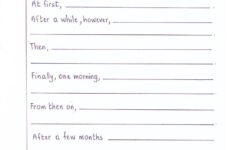 At first,
After a while, however,
Then,
Finally, one morning,
From then on,
After a few months